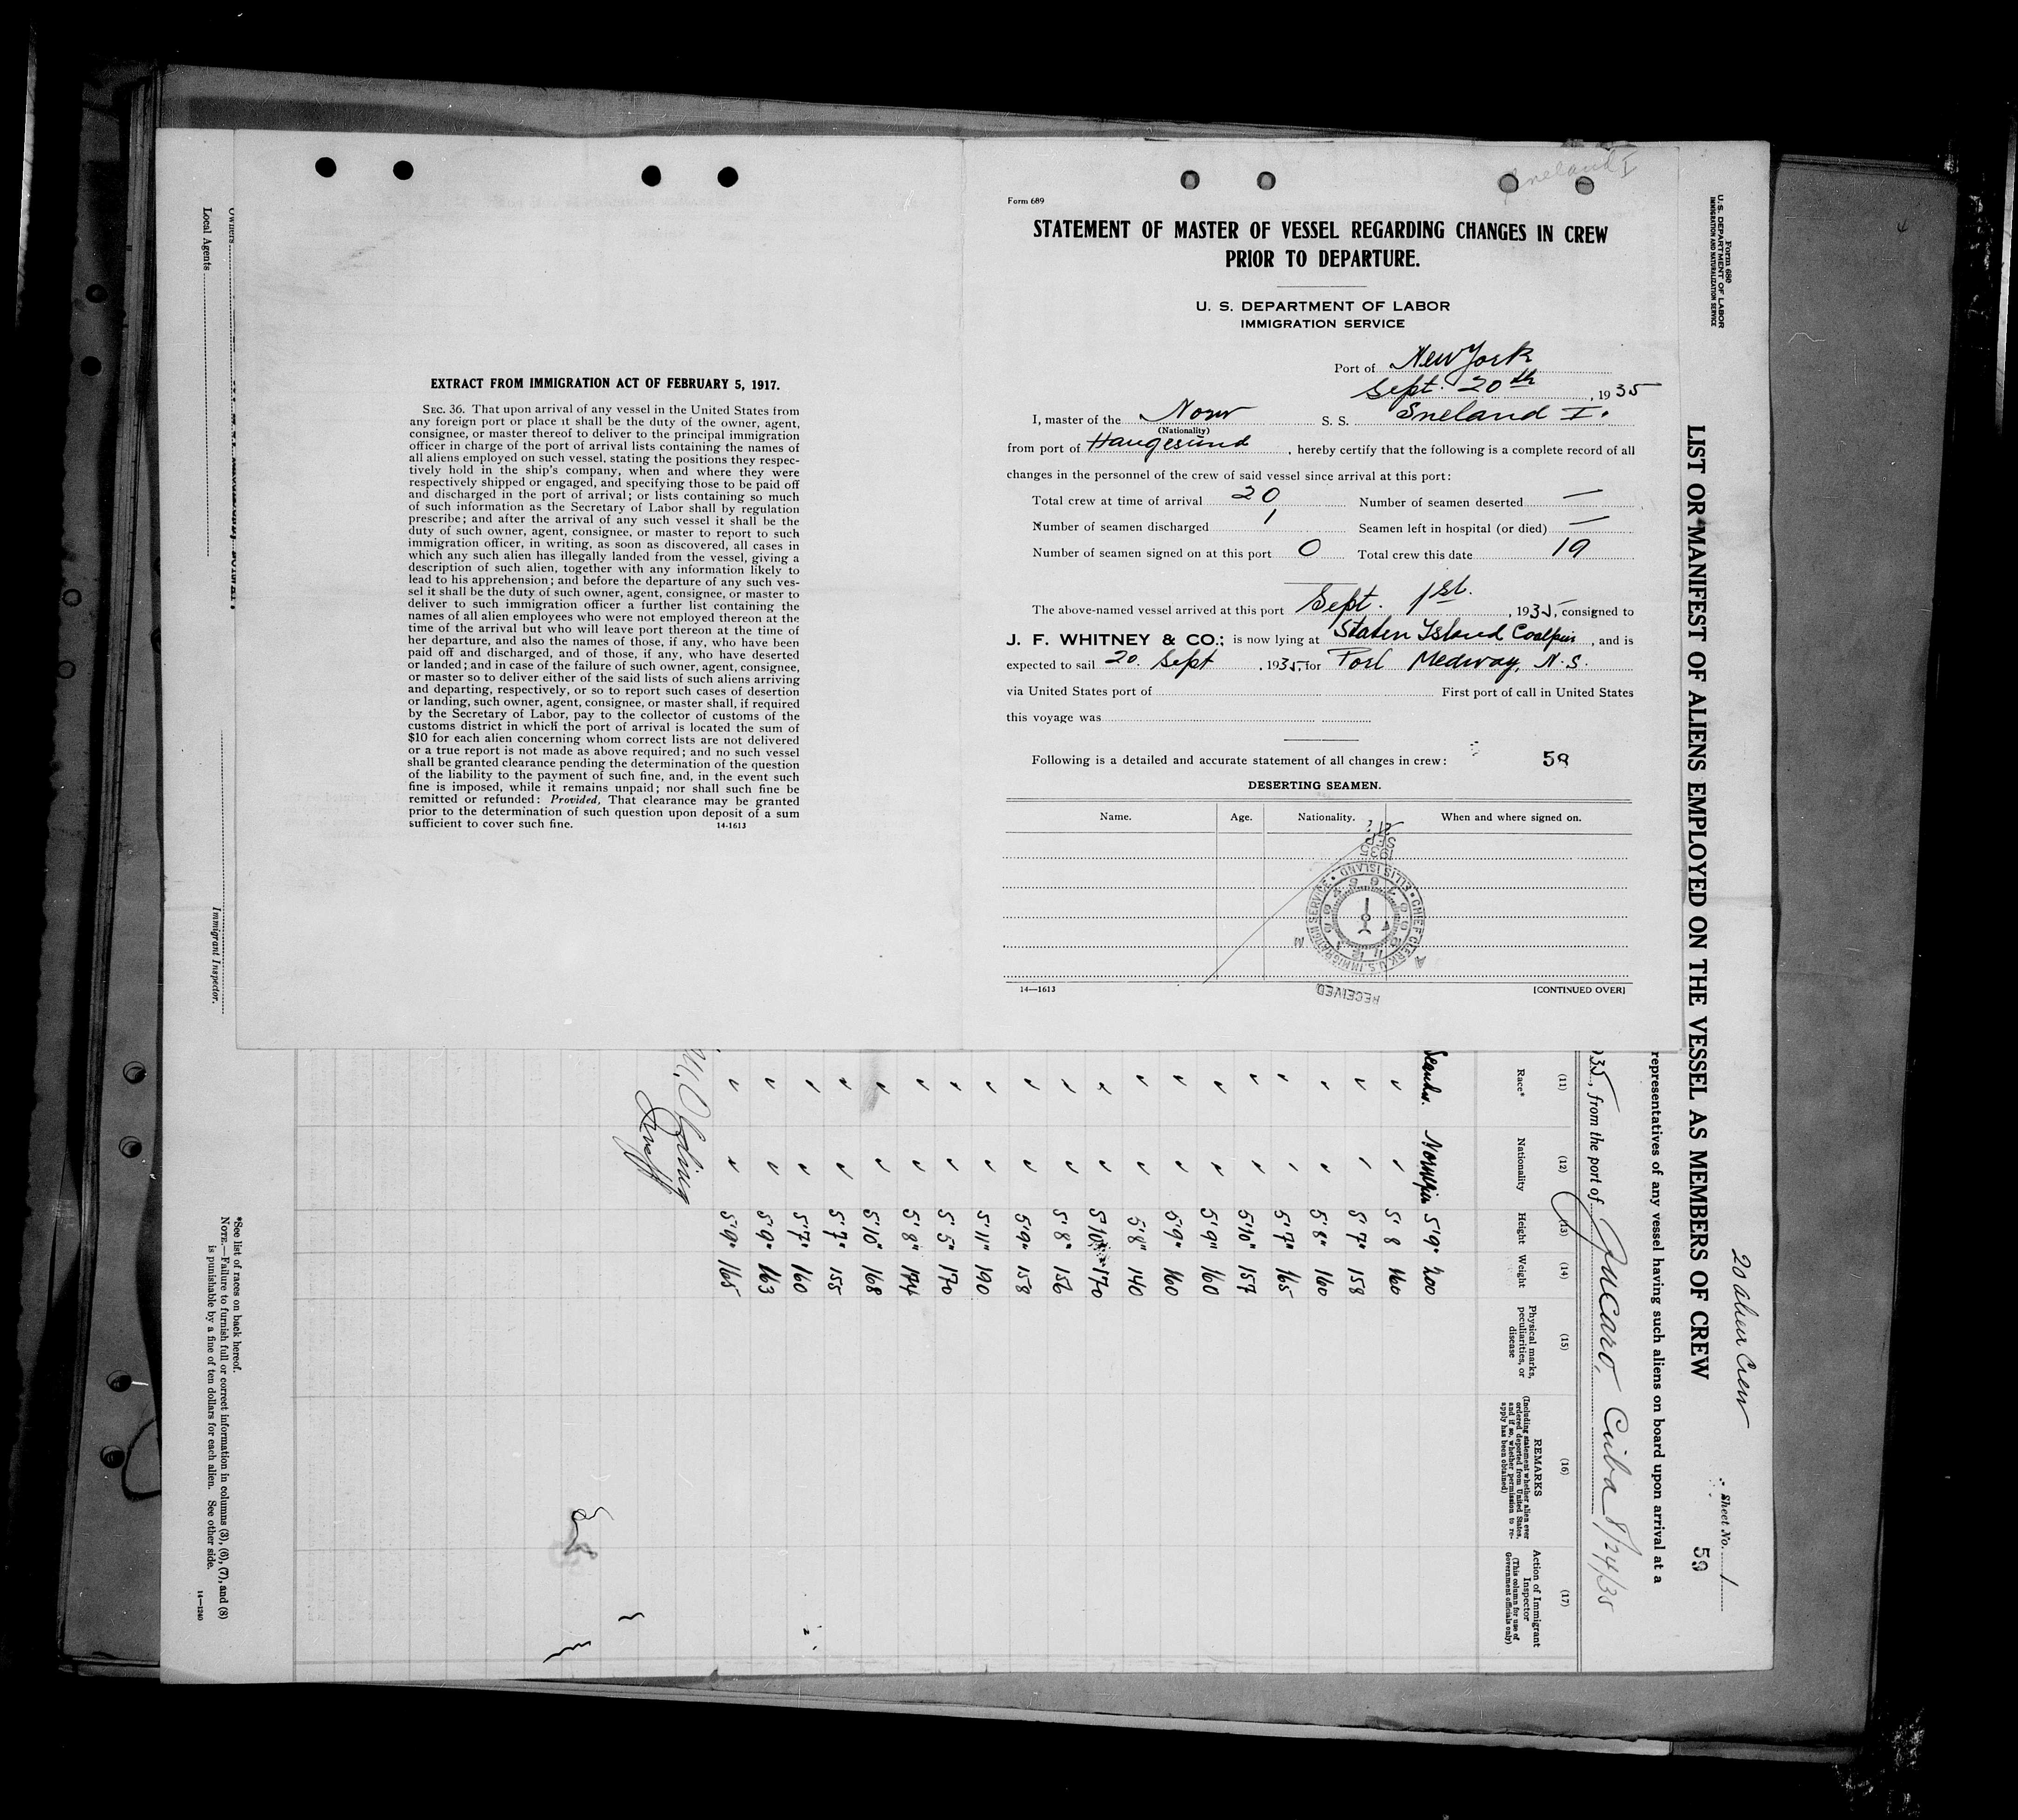 Sneland I
Form 689
STATEMENT OF MASTER OF VESSEL REGARDING CHANGES IN CREW
PRIOR TO DEPARTURE.
U. S. DEPARTMENT OF LABOR
IMMIGRATION SERVICE
Port of New York
Sept. 20th, 1935
I, master of the Norw S. S. Sneland I.
(Nationality)
from port of Haugesund, hereby certify that the following is a complete record of all
changes in the personnel of the crew of said vessel since arrival at this port:
Total crew at time of arrival 20 Number of seamen deserted —
Number of seamen discharged 1 Seamen left in hospital (or died) —
Number of seamen signed on at this port 0 Total crew this date 19
The above-named vessel arrived at this port Sept. 1st., 1935, consigned to
J. F. WHITNEY & CO.; is now lying at Staten Island Coalpier, and is
expected to sail 20. Sept, 1935 for Port Medway, N.S.
via United States port of First port of call in United States
this voyage was
Following is a detailed and accurate statement of all changes in crew: 59
DESERTING SEAMEN.
Name. Age. Nationality. When and where signed on.
1935
SEP
CHIEF CLERK U.S. IMMIGRATION SERVICE • ELLIS ISLAND •
RECEIVED
14—1613 [CONTINUED OVER]
EXTRACT FROM IMMIGRATION ACT OF FEBRUARY 5, 1917.
SEC. 36. That upon arrival of any vessel in the United States from
any foreign port or place it shall be the duty of the owner, agent,
consignee, or master thereof to deliver to the principal immigration
officer in charge of the port of arrival lists containing the names of
all aliens employed on such vessel, stating the positions they respec-
tively hold in the ship's company, when and where they were
respectively shipped or engaged, and specifying those to be paid off
and discharged in the port of arrival; or lists containing so much
of such information as the Secretary of Labor shall by regulation
prescribe; and after the arrival of any such vessel it shall be the
duty of such owner, agent, consignee, or master to report to such
immigration officer, in writing, as soon as discovered, all cases in
which any such alien has illegally landed from the vessel, giving a
description of such alien, together with any information likely to
lead to his apprehension; and before the departure of any such ves-
sel it shall be the duty of such owner, agent, consignee, or master to
deliver to such immigration officer a further list containing the
names of all alien employees who were not employed thereon at the
time of the arrival but who will leave port thereon at the time of
her departure, and also the names of those, if any, who have been
paid off and discharged, and of those, if any, who have deserted
or landed; and in case of the failure of such owner, agent, consignee,
or master so to deliver either of the said lists of such aliens arriving
and departing, respectively, or so to report such cases of desertion
or landing, such owner, agent, consignee, or master shall, if required
by the Secretary of Labor, pay to the collector of customs of the
customs district in which the port of arrival is located the sum of
$10 for each alien concerning whom correct lists are not delivered
or a true report is not made as above required; and no such vessel
shall be granted clearance pending the determination of the question
of the liability to the payment of such fine, and, in the event such
fine is imposed, while it remains unpaid; nor shall such fine be
remitted or refunded: Provided, That clearance may be granted
prior to the determination of such question upon deposit of a sum
sufficient to cover such fine. 14-1613
20 alien Crew
Sheet No. 1
Form 680
U. S. DEPARTMENT OF LABOR
IMMIGRATION AND NATURALIZATION SERVICE
59
LIST OR MANIFEST OF ALIENS EMPLOYED ON THE VESSEL AS MEMBERS OF CREW
representatives of any vessel having such aliens on board upon arrival at a
35, from the port of Jucaro, Cuba 8/24/35
(11) (12) (13) (14) (15) (16) (17)
Race* Nationality Height Weight Physical marks, peculiarities, or disease REMARKS (Including statement whether alien ever ordered deported from United States, and if so, whether permission to re-apply has been obtained) Action of Immigrant Inspector (This column for use of Government officials only)
Scandin. Norwegian 5'9" 200
✓ ✓ 5'8 160
✓ ✓ 5'7" 158
✓ ✓ 5'8" 160
✓ ✓ 5'7" 165
✓ ✓ 5'10" 157
✓ ✓ 5'9" 160
✓ ✓ 5'9" 160
✓ ✓ 5'8" 140
✓ ✓ 5'10" 170
✓ ✓ 5'8" 156
✓ ✓ 5'9" 158
✓ ✓ 5'11" 190
✓ ✓ 5'5" 170
✓ ✓ 5'8" 174
✓ ✓ 5'10" 168
✓ ✓ 5'7" 155
✓ ✓ 5'7" 160
✓ ✓ 5'9" 163
✓ ✓ 5'9" 165
*See list of races on back hereof.
NOTE.—Failure to furnish full or correct information in columns (3), (6), (7), and (8)
is punishable by a fine of ten dollars for each alien. See other side.
14—1240
Owners
Local Agents
Immigrant Inspector.